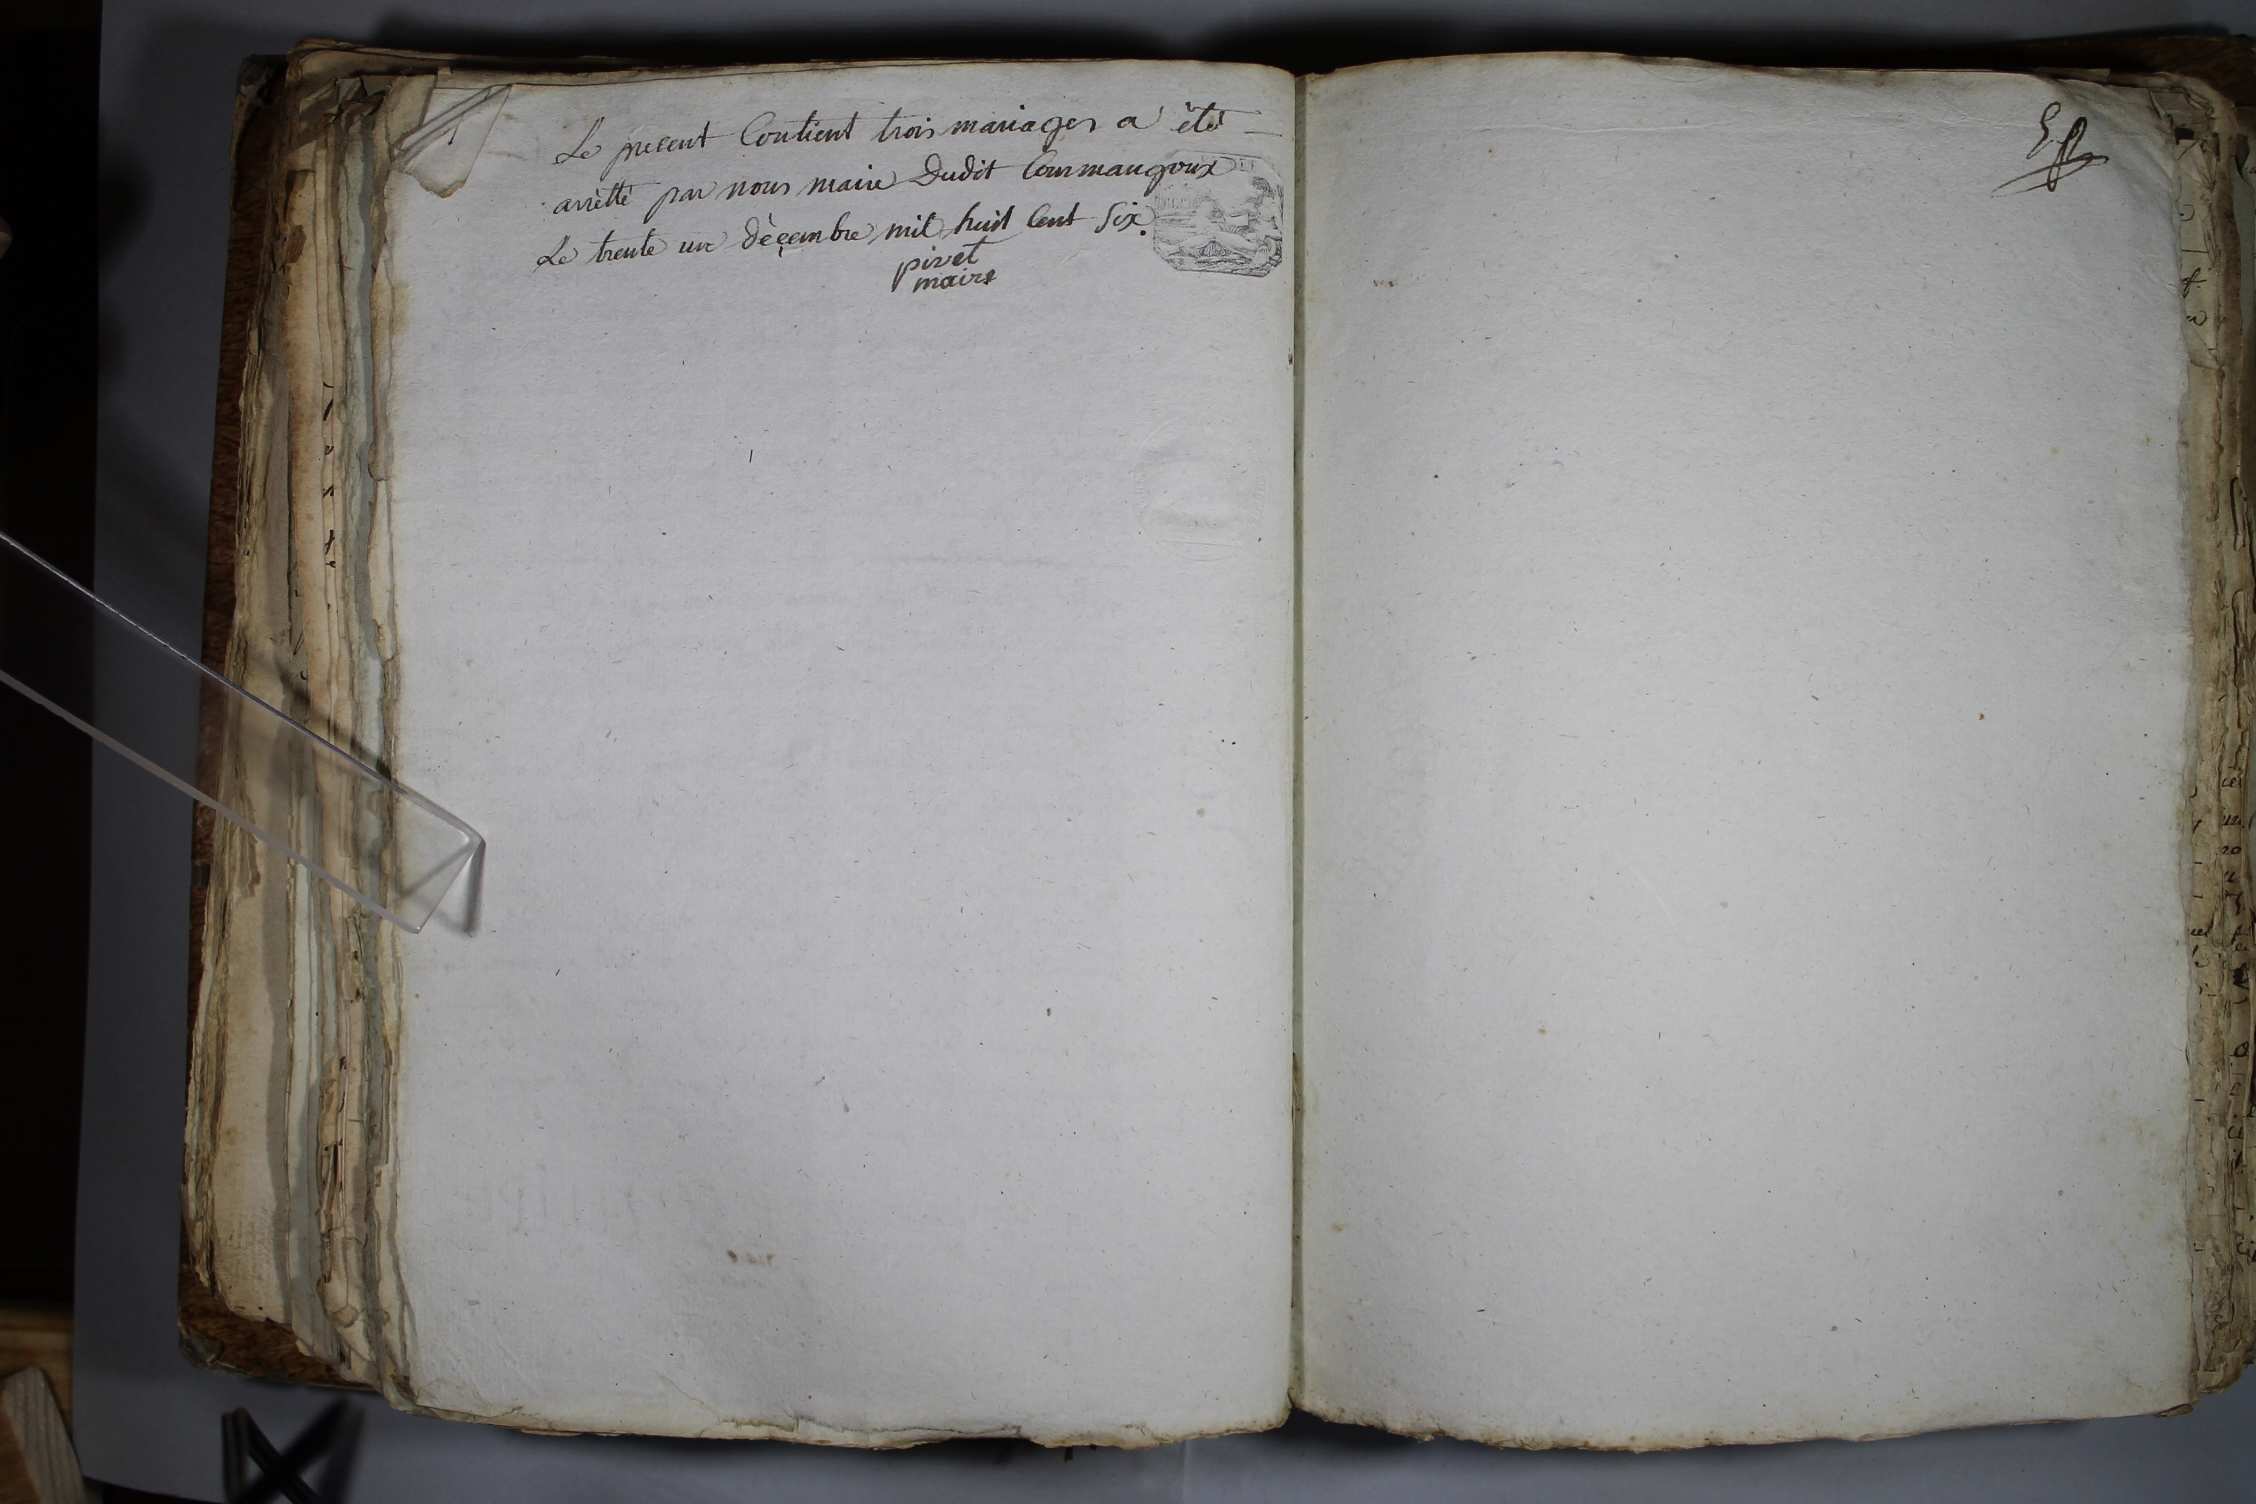 Le present Contient trois mariages a èté
arrètté par nous maire Dudit Courmangoux
Le trente un dècembre mil huit Cent Six.
pivet
maire